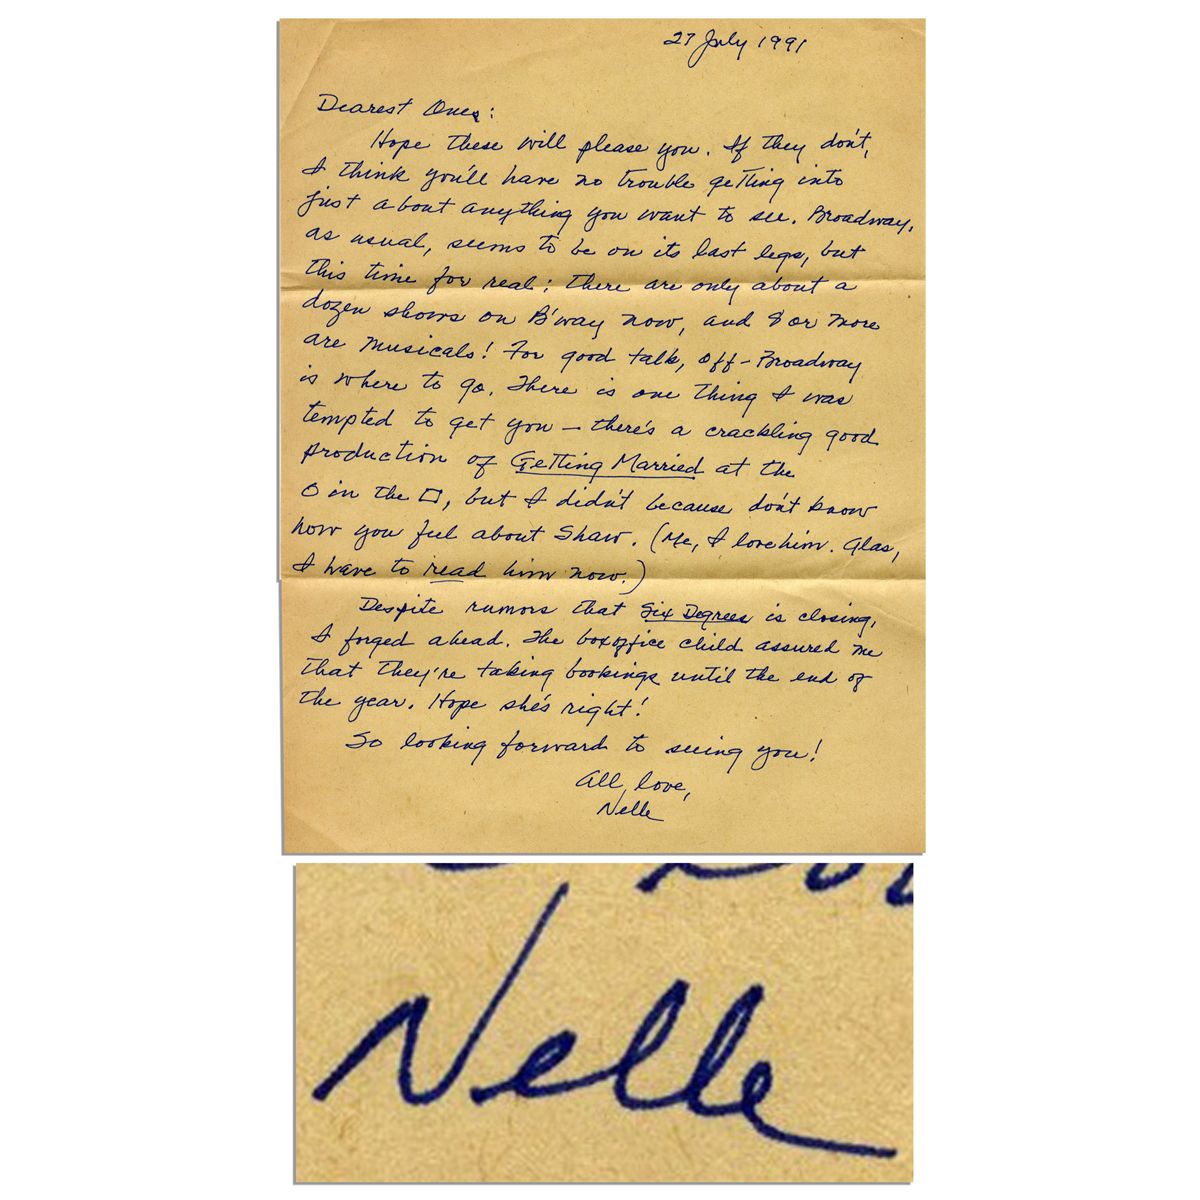 27 July 1991
Dearest Ones:
Hope these will please you. If they don't,
I think you'll have no trouble getting into
just about anything you want to see. Broadway,
as usual, seems to be on its last legs, but
this time for real: there are only about a
dozen shows on B'way now, and 8 or more
are musicals! For good talk, Off-Broadway
is where to go. There is one thing I was
tempted to get you — there's a crackling good
production of Getting Married at the
O in the □, but I didn't because don't know
how you feel about Shaw. (Me, I love him. Alas,
I have to read him now.)
Despite rumors that Six Degrees is closing,
I forged ahead. The boxoffice child assured me
that they're taking bookings until the end of
the year. Hope she's right!
So looking forward to seeing you!
All love,
Nelle
Nelle